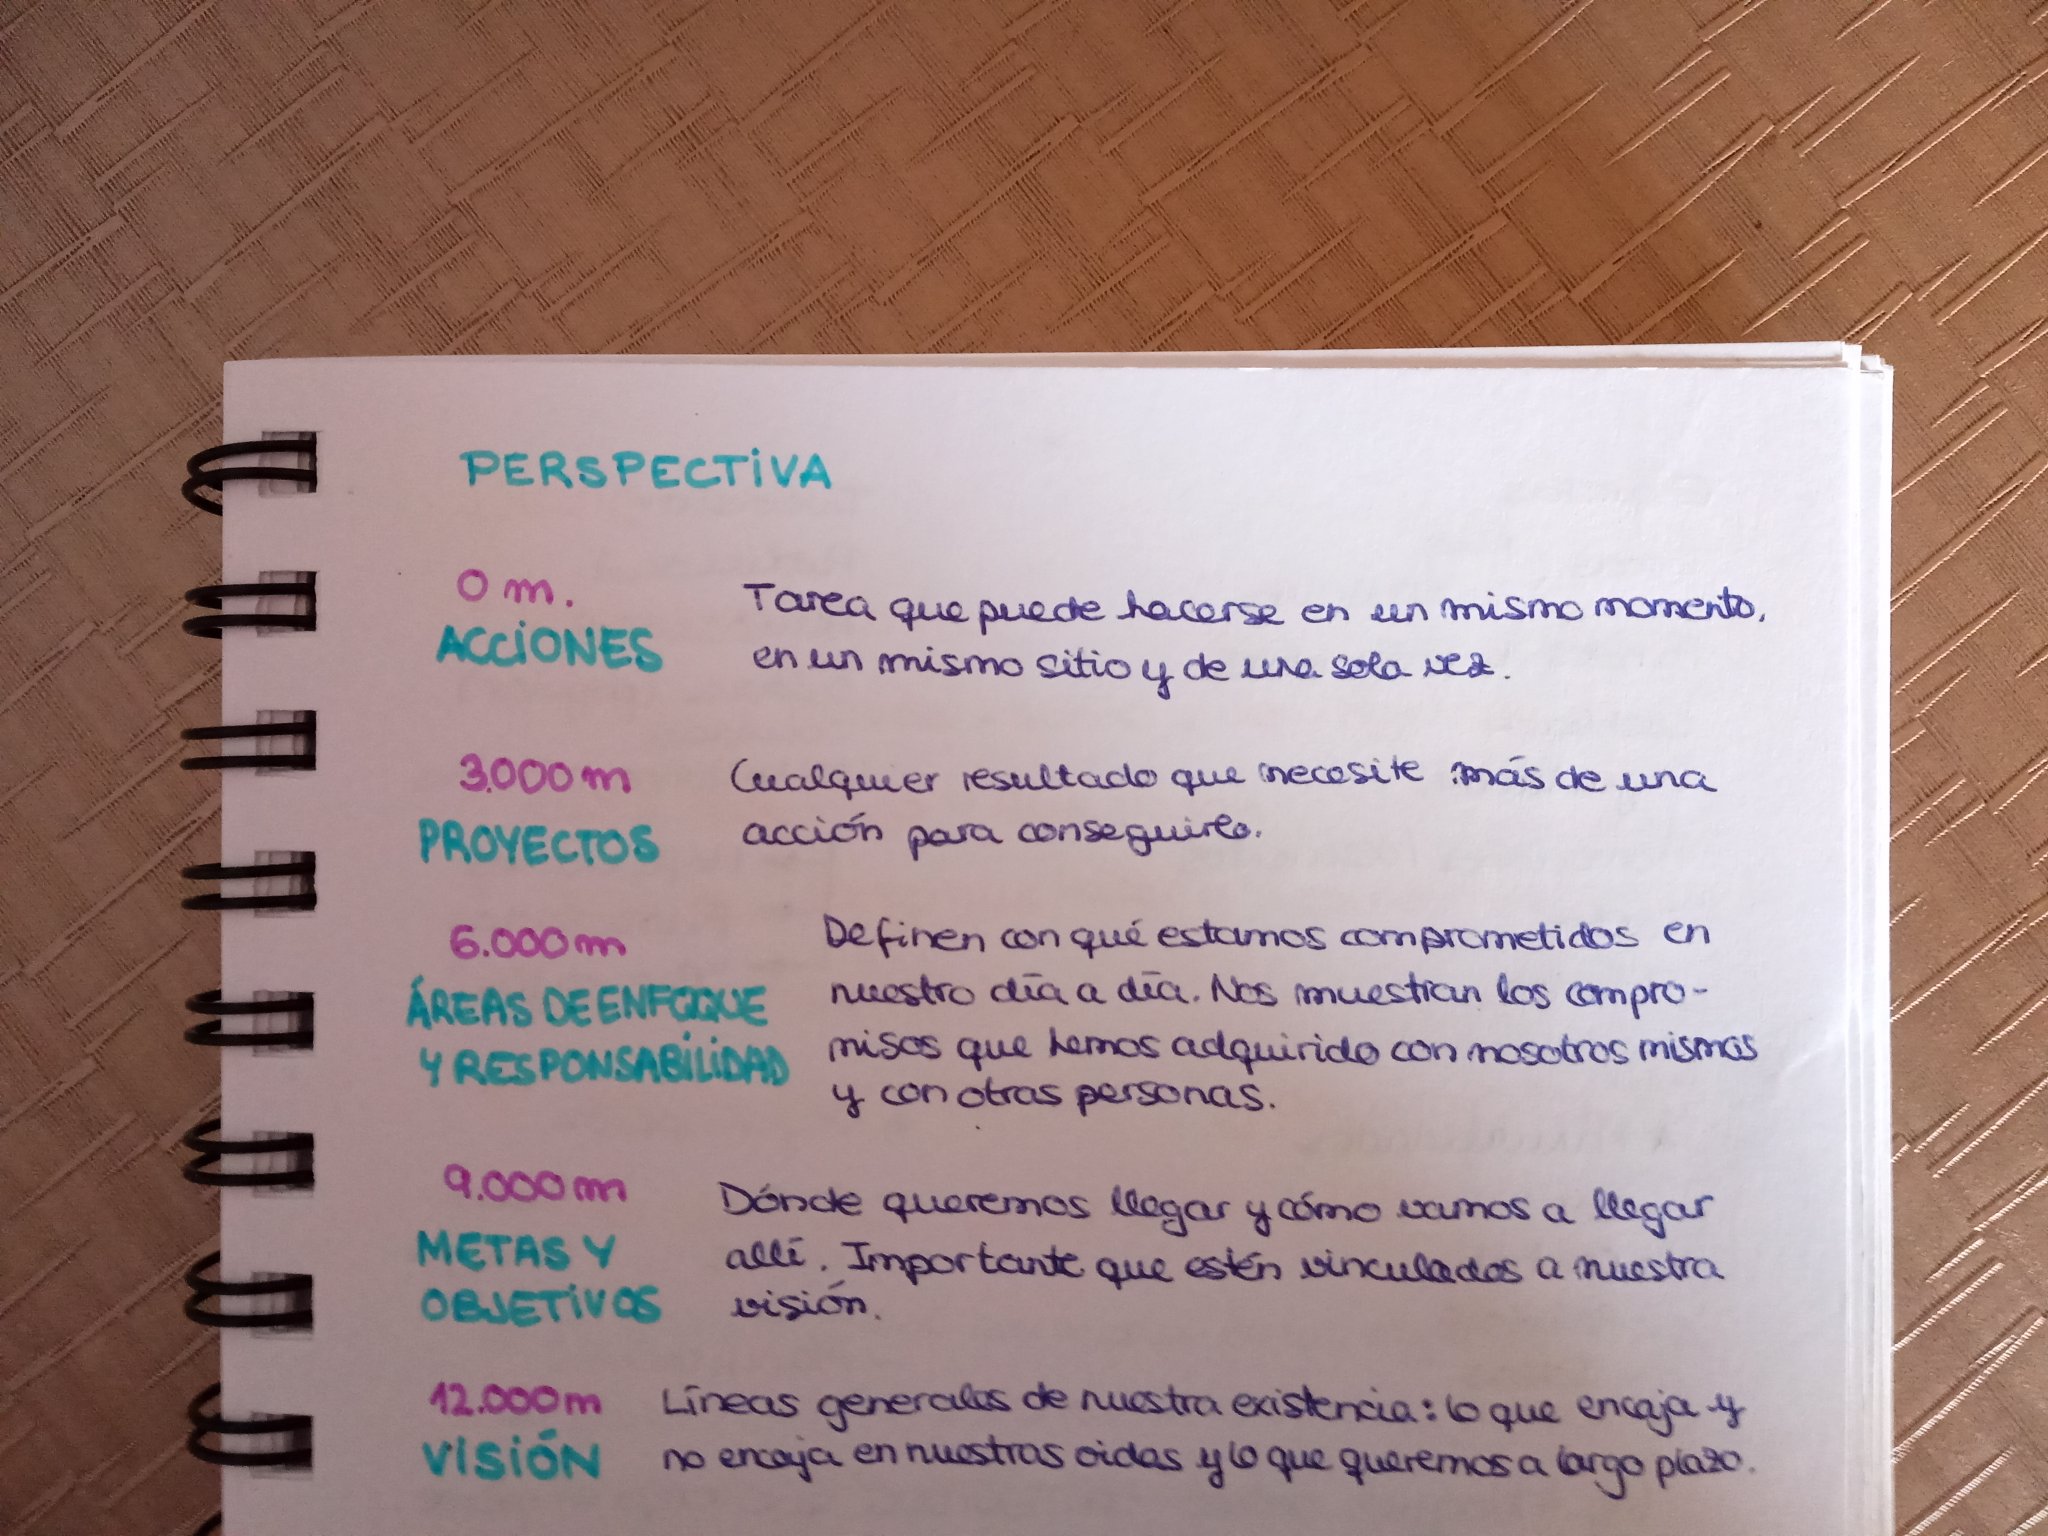 PERSPECTIVA
0 m.
ACCIONES
Tarea que puede hacerse en un mismo momento,
en un mismo sitio y de una sola vez.
3.000 m
PROYECTOS
Cualquier resultado que necesite más de una
acción para conseguirlo.
6.000 m
ÁREAS DE ENFOQUE
Y RESPONSABILIDAD
Definen con qué estamos comprometidos en
nuestro día a día. Nos muestran los compro-
misos que hemos adquirido con nosotros mismas
y con otras personas.
9.000 m
METAS Y
OBJETIVOS
Dónde queremos llegar y cómo vamos a llegar
allí. Importante que estén vinculados a nuestra
visión.
12.000 m
VISIÓN
Líneas generales de nuestra existencia: lo que encaja y
no encaja en nuestras vidas y lo que queremos a largo plazo.